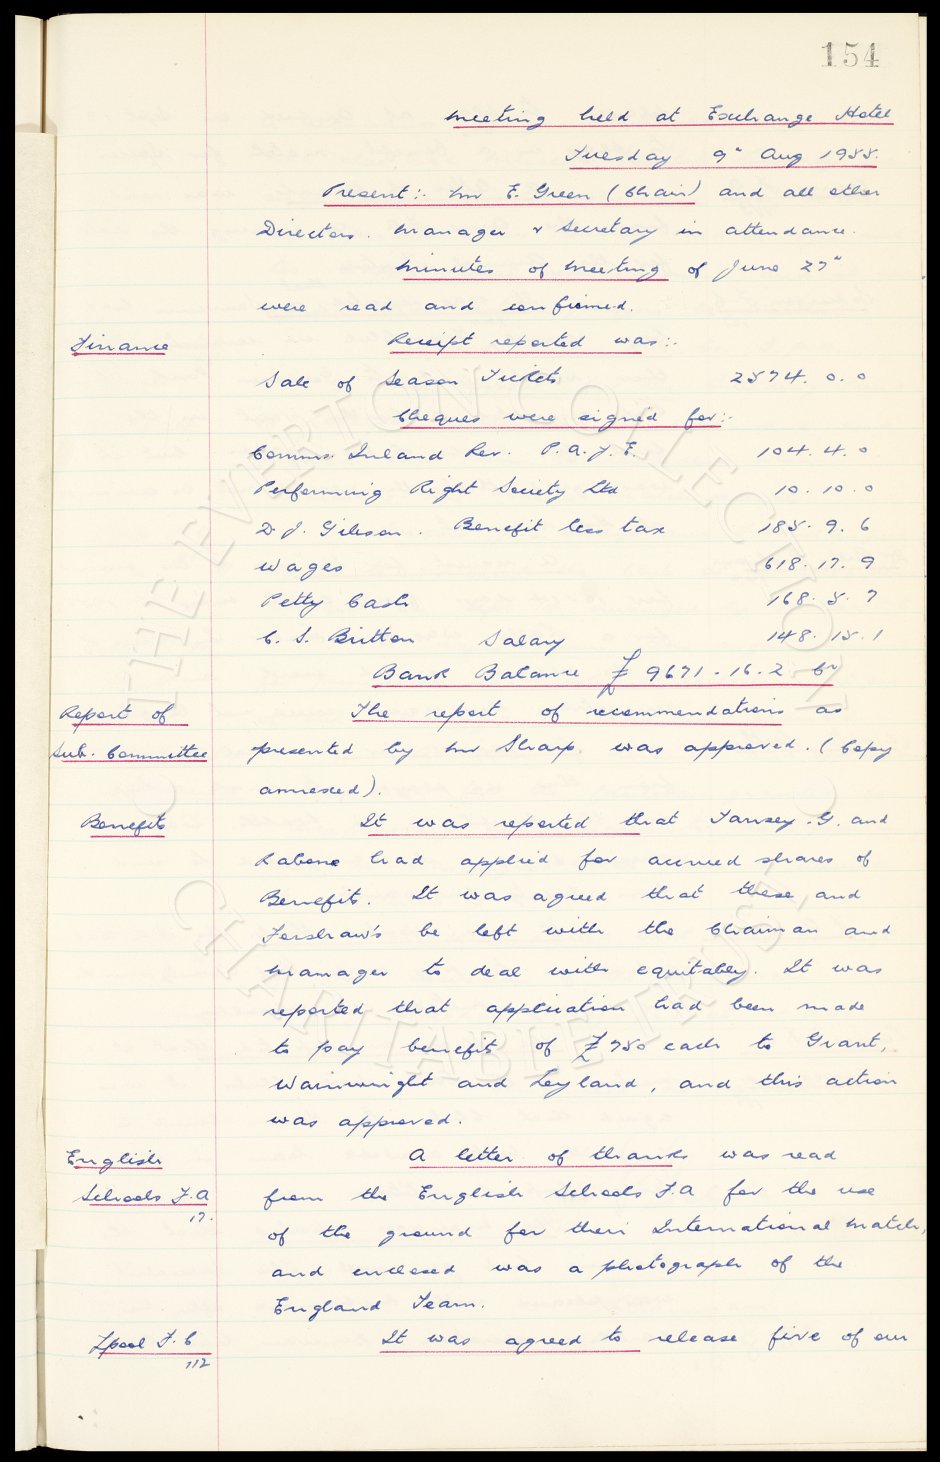 154
Meeting held at Exchange Hotel
Tuesday 9" Aug 1955.
Present:- Mr E. Green (Chair) and all other
Directors. Manager & Secretary in attendance.
Minutes of Meeting of June 27"
were read and confirmed.
Finance
Receipt reported was:-
Sale of Season Tickets 2574. 0. 0
Cheques were signed for:-
Comms. Inland Rev. P.A.Y.E. 104. 4. 0
Performing Right Society Ltd 10. 10. 0
D.J. Gibson. Benefit less tax 185. 9. 6
Wages 618. 17. 9
Petty Cash 168. 5. 7
C. S. Britton Salary 148. 15. 1
Bank Balance £9671. 16. 2 Cr
Report of
Sub. Committee
The report of recommendations as
presented by Mr Sharp. was approved. (Copy
annexed).
Benefits
It was reported that Tansey. G. and
Rabone had applied for accrued shares of
Benefit. It was agreed that these and
Forshaw's be left with the Chairman and
Manager to deal with equitably. It was
reported that application had been made
to pay benefit of £750 each to Grant,
Wainwright and Leyland, and this action
was approved.
English
Schools F.A
17.
A letter of thanks was read
from the English Schools F.A for the use
of the ground for their International Match,
and enclosed was a photograph of the
England Team.
Lpool F.C
112
It was agreed to release five of our
© THE EVERTON COLLECTION
CHARITABLE TRUST